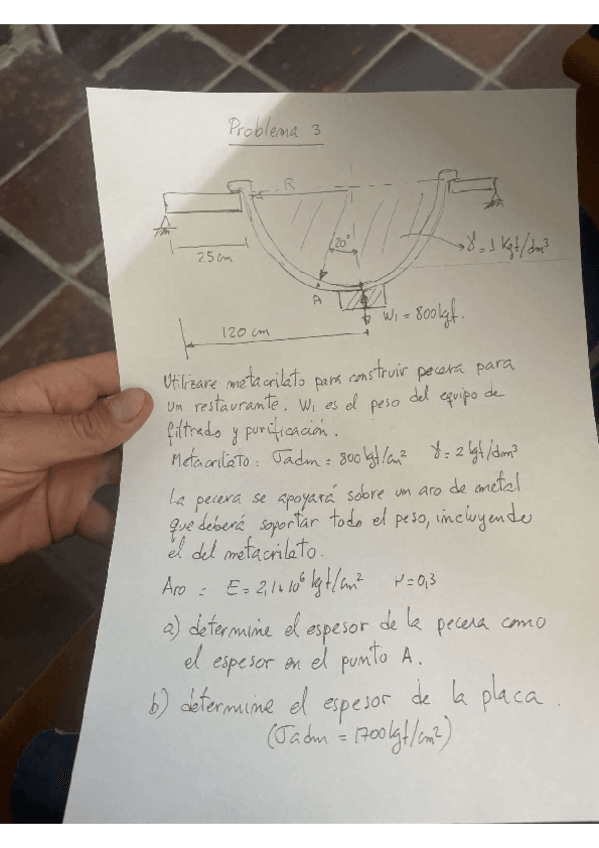 Problema 3
R
20°
γ = 1 Kgf/dm³
25cm
A
W₁ = 800kgf.
120 cm
Utilizare metacrilato para construir pecera para
un restaurante. W₁ es el peso del equipo de
filtrado y purificación.
Metacrilato: σadm = 800 kgf/cm² γ = 2 kgf/dm³
La pecera se apoyará sobre un aro de metal
que deberá soportar todo el peso, incluyendo
el del metacrilato.
Aro = E = 2,1x10⁶ kgf/cm² μ = 0,3
a) determine el espesor de la pecera como
el espesor en el punto A.
b) determine el espesor de la placa.
(σadm = 1700kgf/cm²)